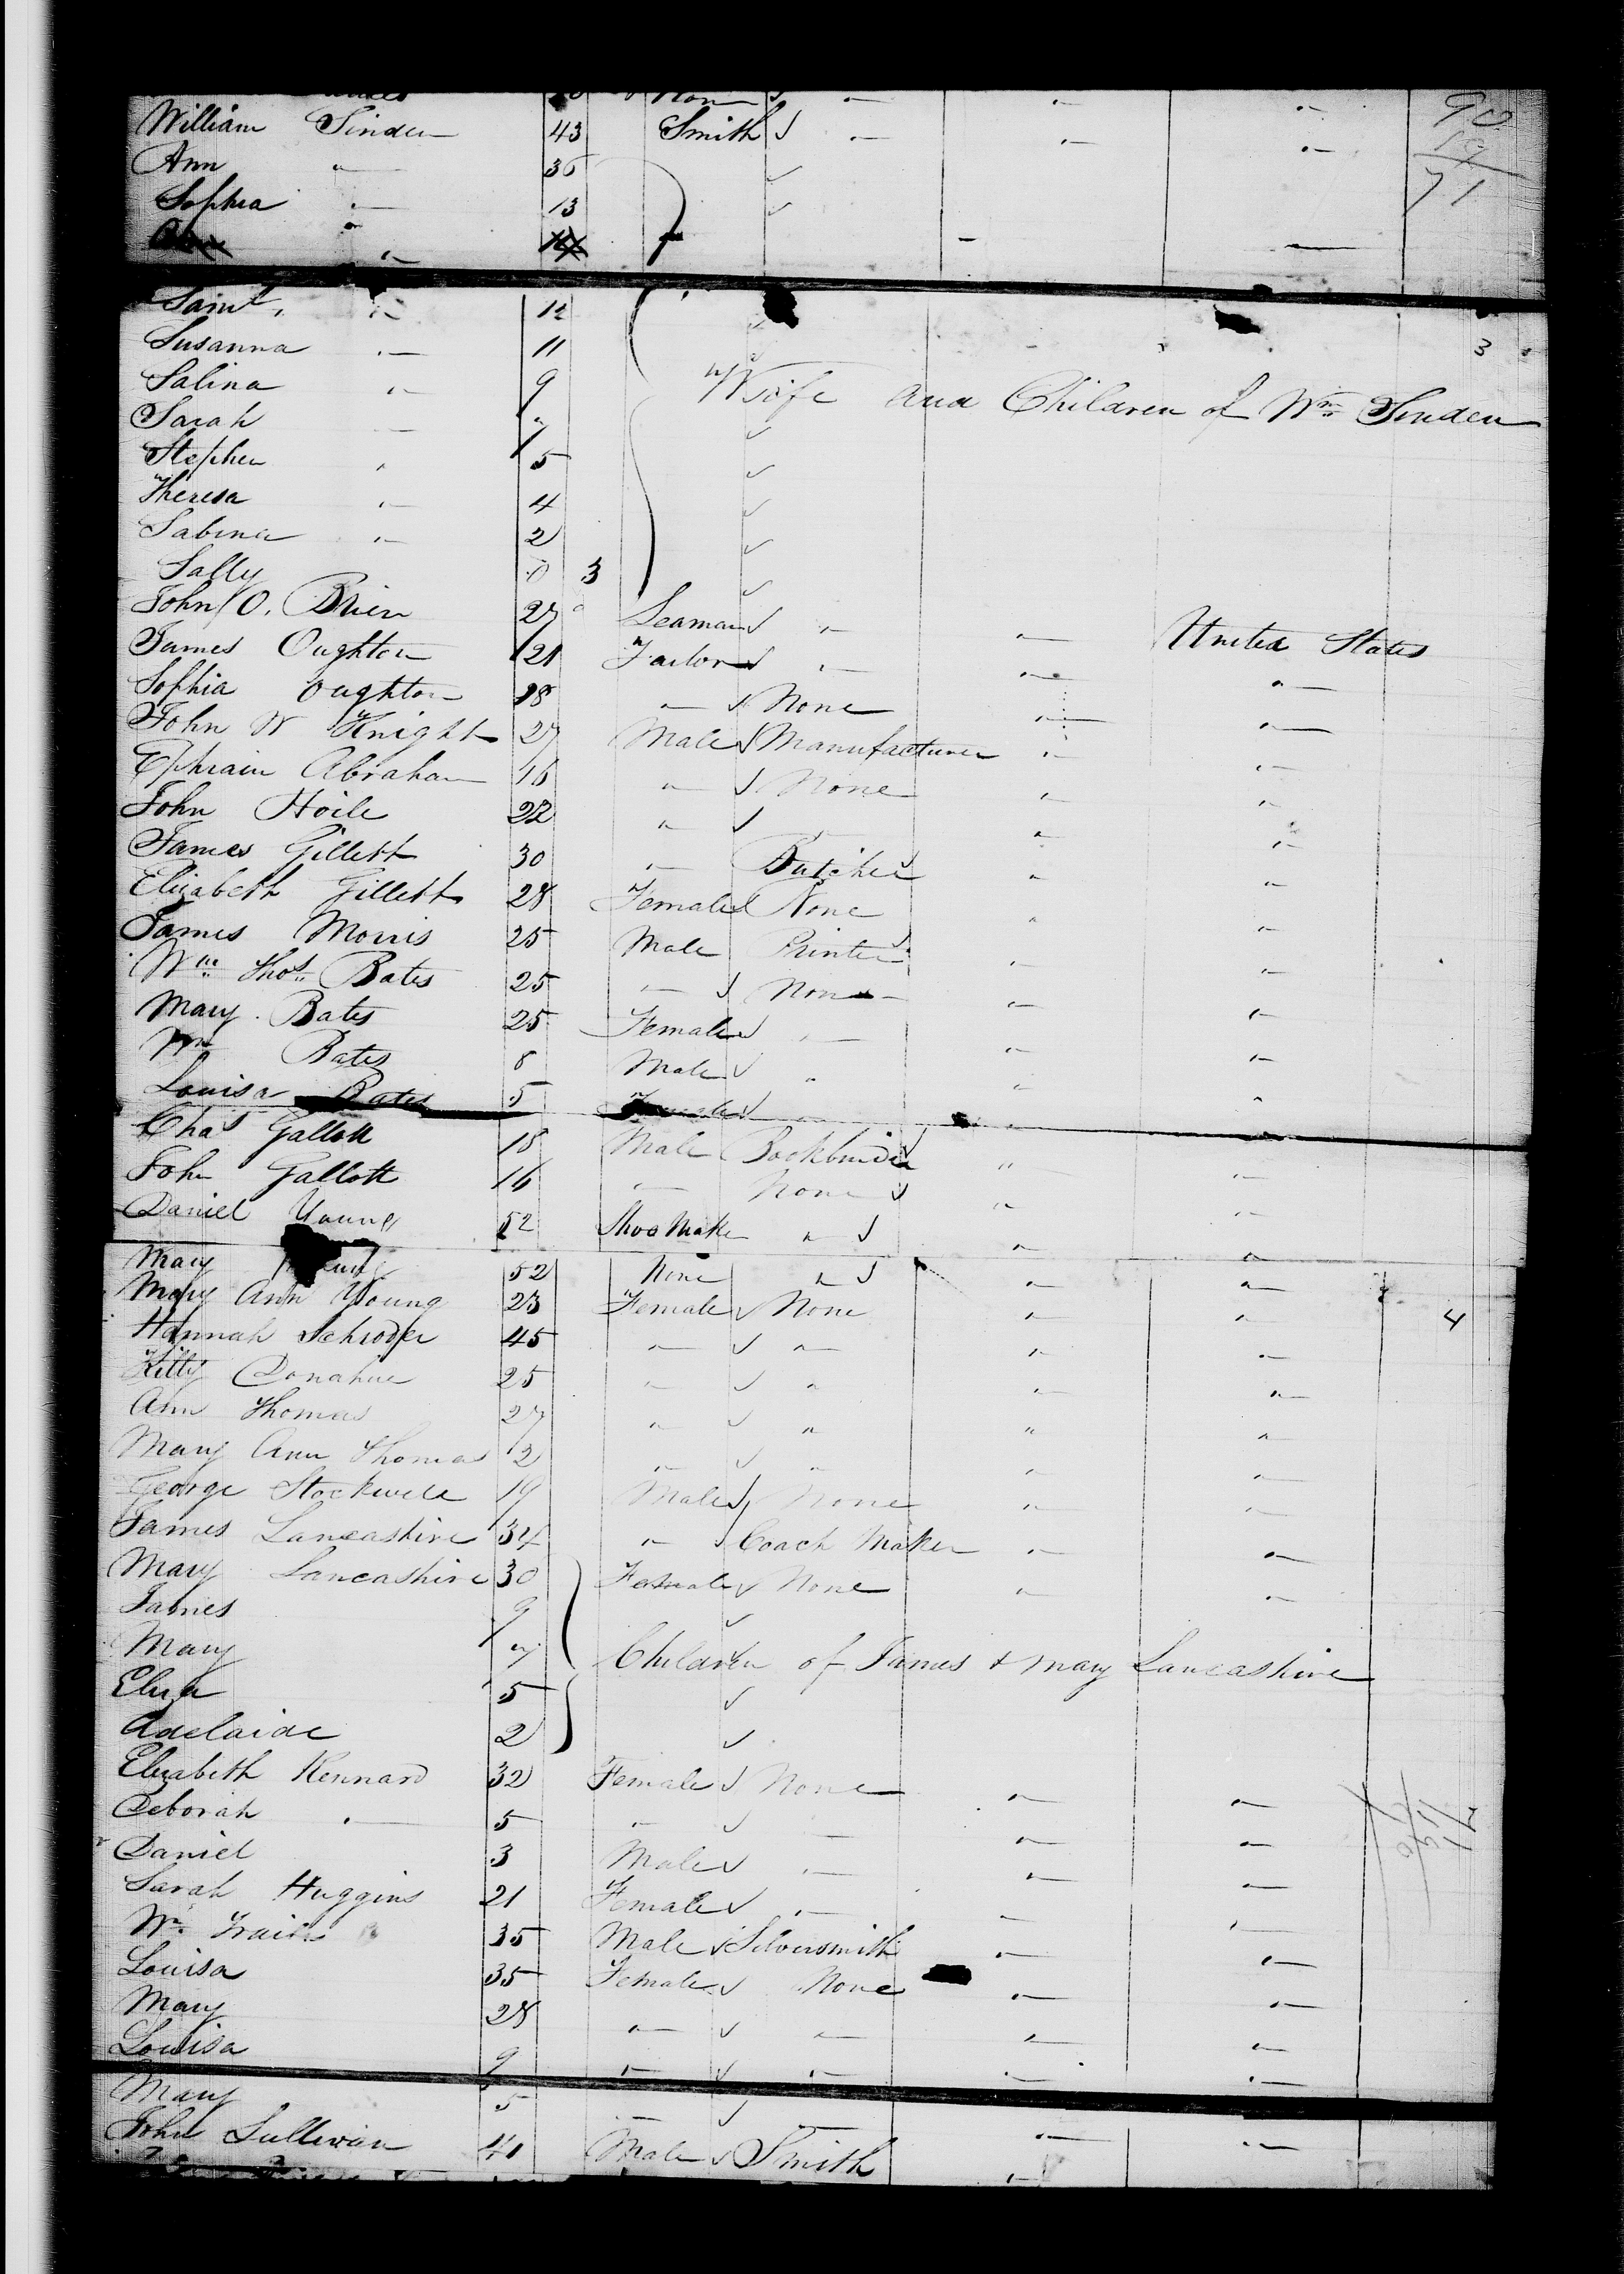 William Sinden 43 Smith
Ann " 36
Sophia " 13
Saml. " 12
Susanna " 11 3
Salina " 9
Wife and Children of Wm. Sinden
Sarah " 7
Stephen " 5
Theresa " 4
Sabina " 2
Sally 3
John O. Brien 27 Seaman " " United States
James Oughton 21 Tailor " " "
Sophia Oughton 18 " None " "
John W Knight 27 Male Manufacturer " "
Ephraim Abraham 16 " None " "
John Hoile 22 " " " "
James Gillett 30 " Butcher " "
Elizabeth Gillett 28 Female None " "
James Morris 25 Male Printer " "
Wm. Thos. Bates 25 " None " "
Mary Bates 25 Female " " "
Wm Bates 8 Male " " "
Louisa Bates 5 Female " " "
Chas Gallott 18 Male Bookbinder " "
John Gallott 16 " None " "
Daniel Young 52 Shoe Maker " " "
Mary Young 52 None " " "
Mary Ann Young 23 Female None " " 4
Hannah Schroder 45 " " " "
Kitty Donahue 25 " " " "
Ann Thomas 27 " " " "
Mary Ann Thomas 2 " " " "
George Stockwell 19 Male None " "
James Lancashire 34 " Coach Maker " "
Mary Lancashire 30 Female None " "
James 9
Mary 7 Children of James & Mary Lancashire
Eliza 5
Adelaide 2
Elizabeth Kennard 32 Female None " "
Deborah " 5 " " " "
Daniel 3 Male " " "
Sarah Huggins 21 Female " " "
Wm. 35 Male Silversmith " "
Louisa 35 Female None " "
Mary 28 " " " "
Louisa 9 " " " "
Mary 5 " "
John Sullivan 40 Male Smith " "